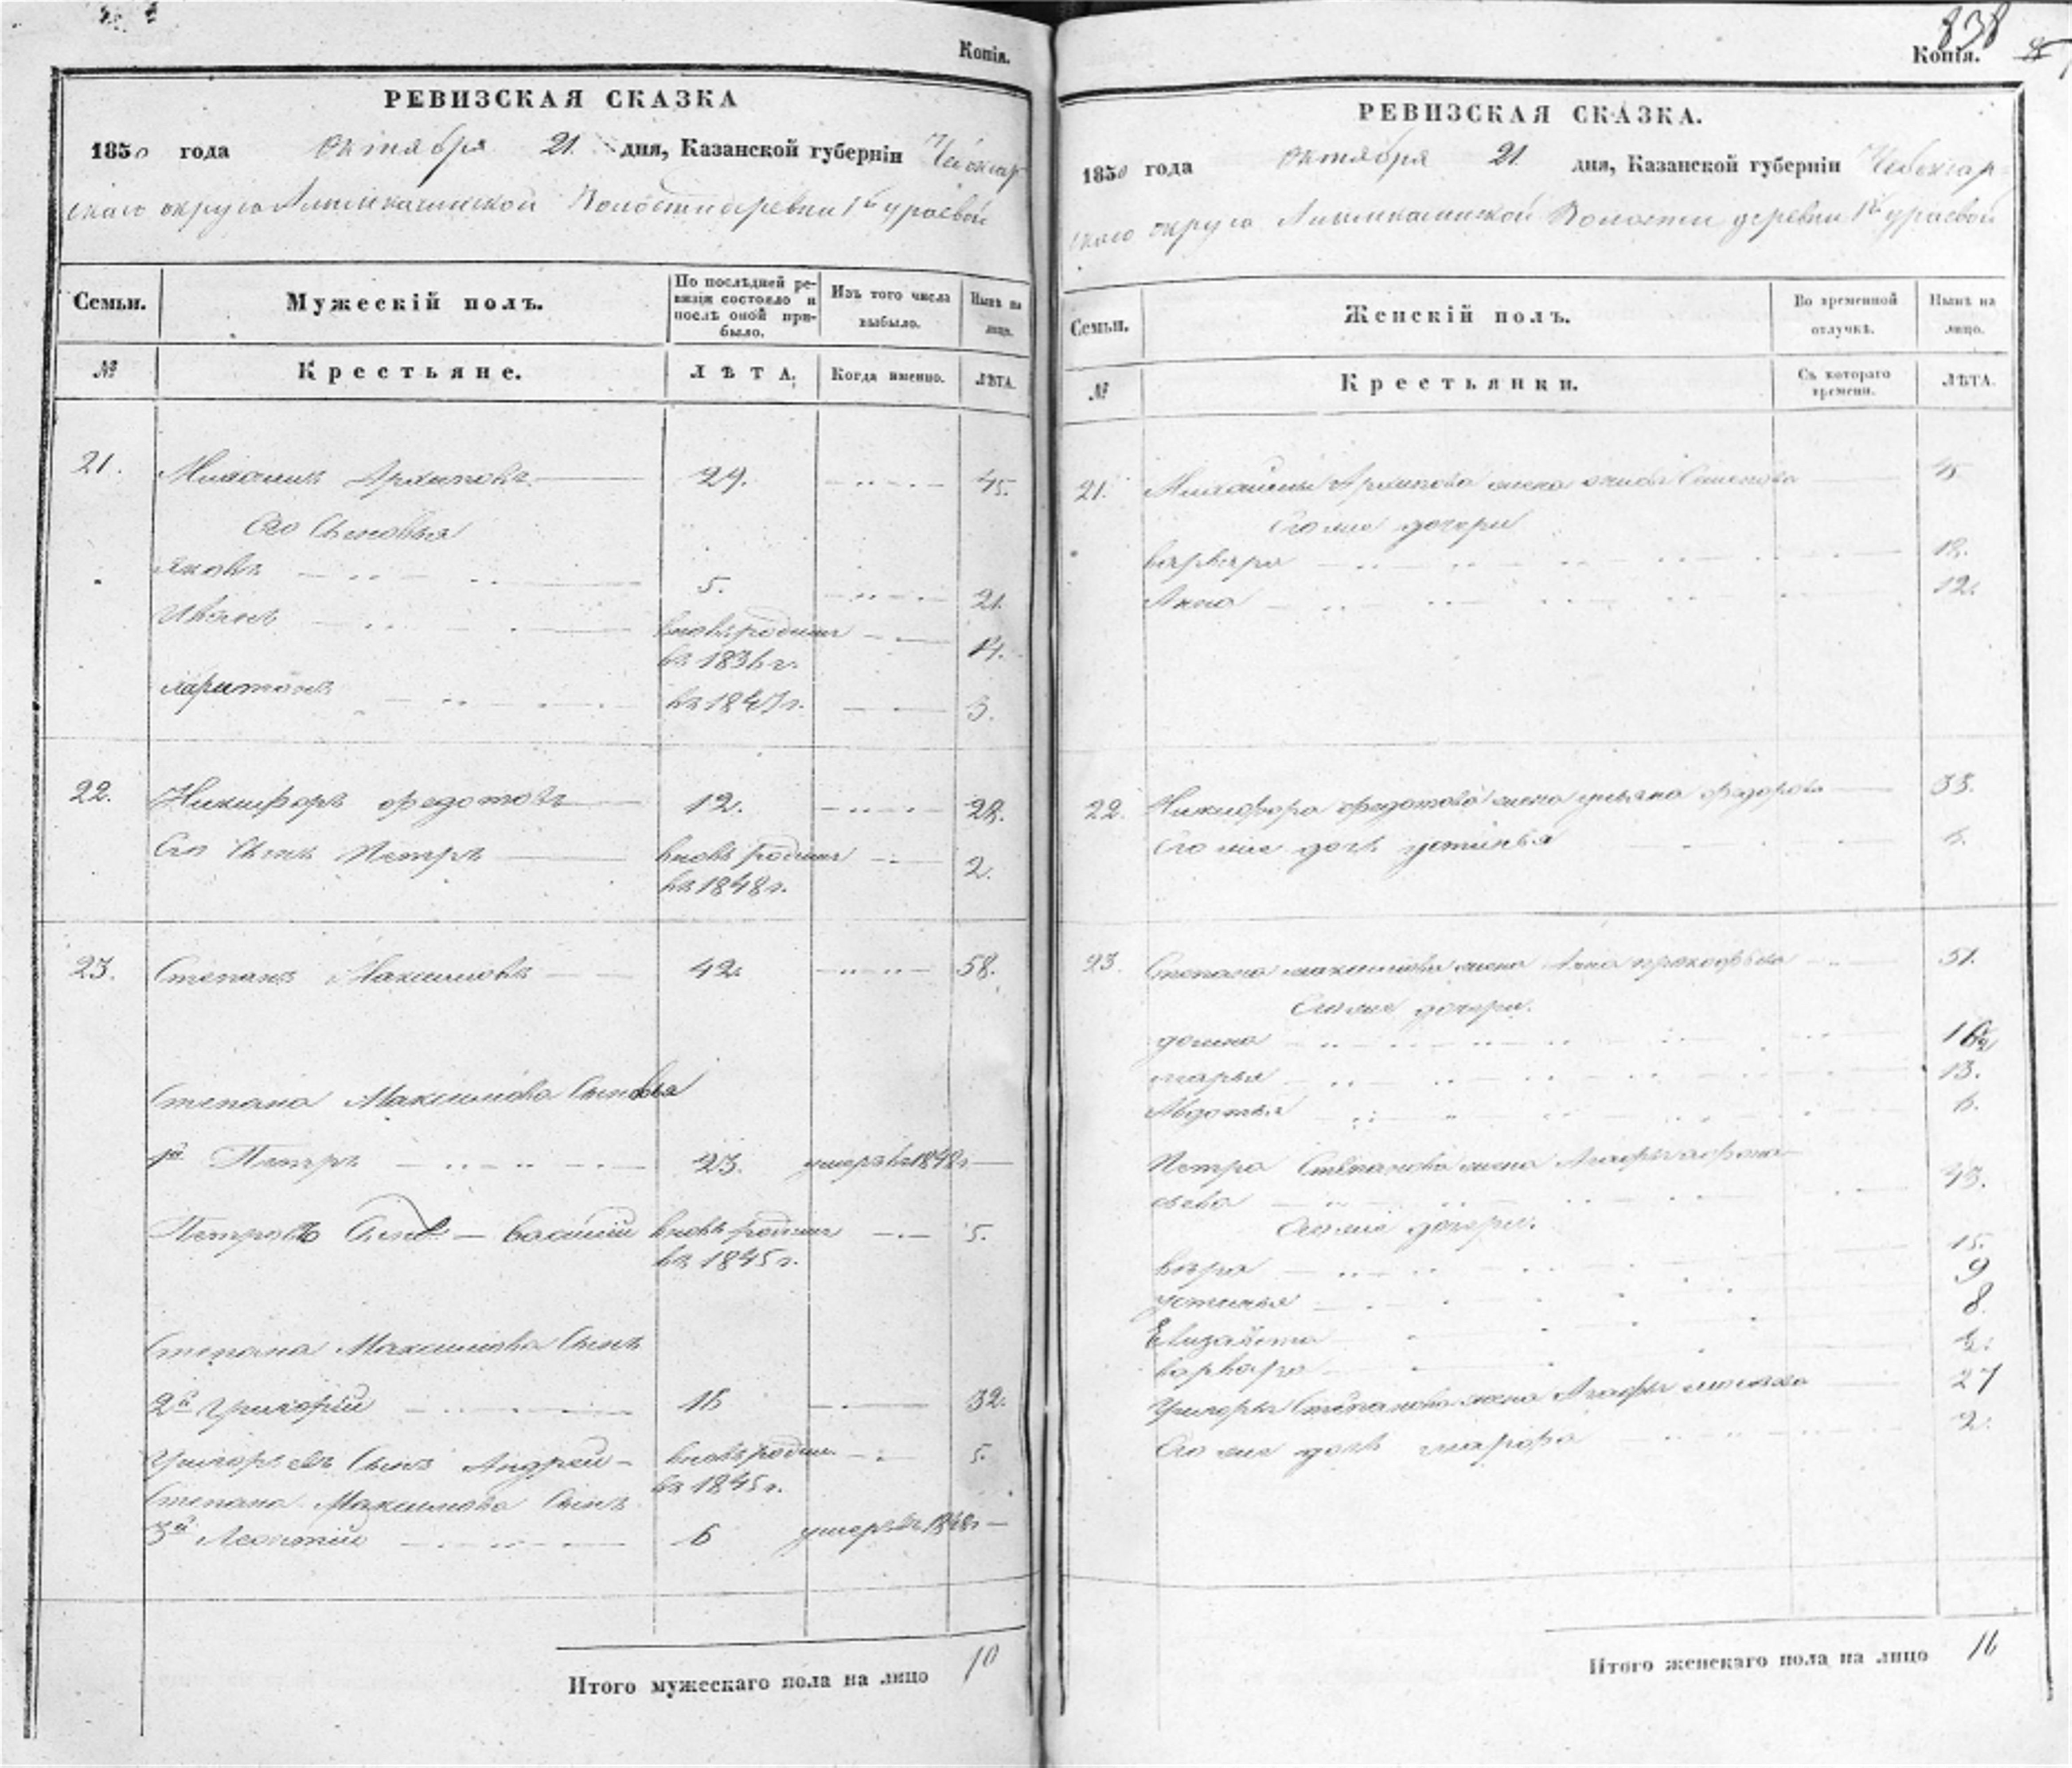 Копія.
РЕВИЗСКАЯ СКАЗКА
1850 года октября 21 дня, Казанской губерніи Чебоксар
скаго округа Волости деревни
Семьи. Мужескій полъ. По послѣдней ре-визіи состояло и послѣ оной при-было. Изъ того числа выбыло. Нынѣ на лицо.
№ Крестьяне. ЛѢТА. Когда именно. ЛѢТА.
21. Архиповъ 29. 45.
Его Сыновья
Яковъ 5. 21.
Иванъ вновь рожден 14.
въ 1836 г.
Харитонъ въ 1847 г. 3.
22. Никифоръ Федотовъ 12. 28.
Его Сынъ Петръ вновь рожден 2.
въ 1848 г.
23. Степанъ Максимовъ 42. 58.
Степана Максимова Сыновья
1й Петръ 23. умеръ въ 1848 г.
Петровъ Сынъ Василий вновь рожден 5.
въ 1845 г.
Степана Максимова Сынъ
2й Григорий 16 32.
Григорьевъ Сынъ Андрей вновь рожден 5.
въ 1845 г.
Степана Максимова Сынъ
3й Леонтий 6 умеръ въ 1848 г.
Итого мужескаго пола на лицо 10
838
Копія.
РЕВИЗСКАЯ СКАЗКА.
1850 года октября 21. дня, Казанской губерніи Чебоксар-
скаго округа Волости деревни
Семьи. Женскій полъ. Во временной отлучкѣ. Нынѣ на лицо.
№ Крестьянки. Съ котораго времени. ЛѢТА.
21. Архипова жена Семенова 45
Его же дочери
Варвара 18.
Анна 12.
22. Никифора Федотова жена Ульяна Федорова 33.
Его же дочь Устинья
23. Степана Максимова жена Анна Прокофьева 51.
Его же дочери.
16
Марья 13.
Авдотья 6.
Петра Степанова жена Агафья Афона-
сьева 43.
Его же дочери.
Вера 15.
Устинья 9
Елизавета 8.
Варвара
Григорья Степанова жена Агафья 27
Его же дочь 2.
Итого женскаго пола на лицо 16